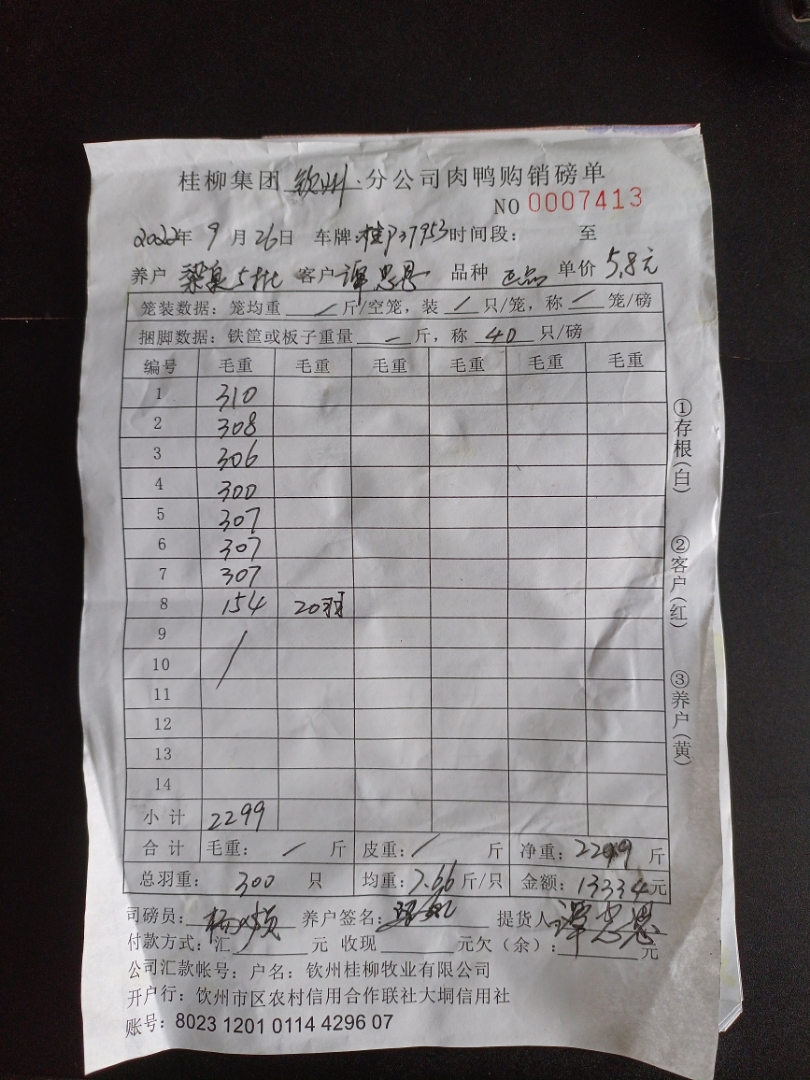 桂柳集团 钦州 分公司肉鸭购销磅单
NO 0007413
2022年 9 月 26日 车牌:桂P37953时间段: 至
养户 梁泉5批 客户 谭思恩 品种 正品 单价 5.8元
笼装数据:笼均重 / 斤/空笼,装 / 只/笼,称 / 笼/磅
捆脚数据:铁筐或板子重量 — 斤,称 40 只/磅
编号 毛重 毛重 毛重 毛重 毛重 毛重
1 310
2 308
3 306
4 300
5 307
6 307
7 307
8 154 20羽
9
10
11
12
13
14
小计 2299
合计 毛重: / 斤 皮重: / 斤 净重: 2299 斤
总羽重: 300 只 均重: 7.66 斤/只 金额: 13334元
司磅员: 养户签名: 提货人 谭思恩
付款方式:汇 元 收现 元欠(余): 元
公司汇款帐号:户名:钦州桂柳牧业有限公司
开户行:钦州市区农村信用合作联社大垌信用社
账号:8023 1201 0114 4296 07
①存根(白)
②客户(红)
③养户(黄)